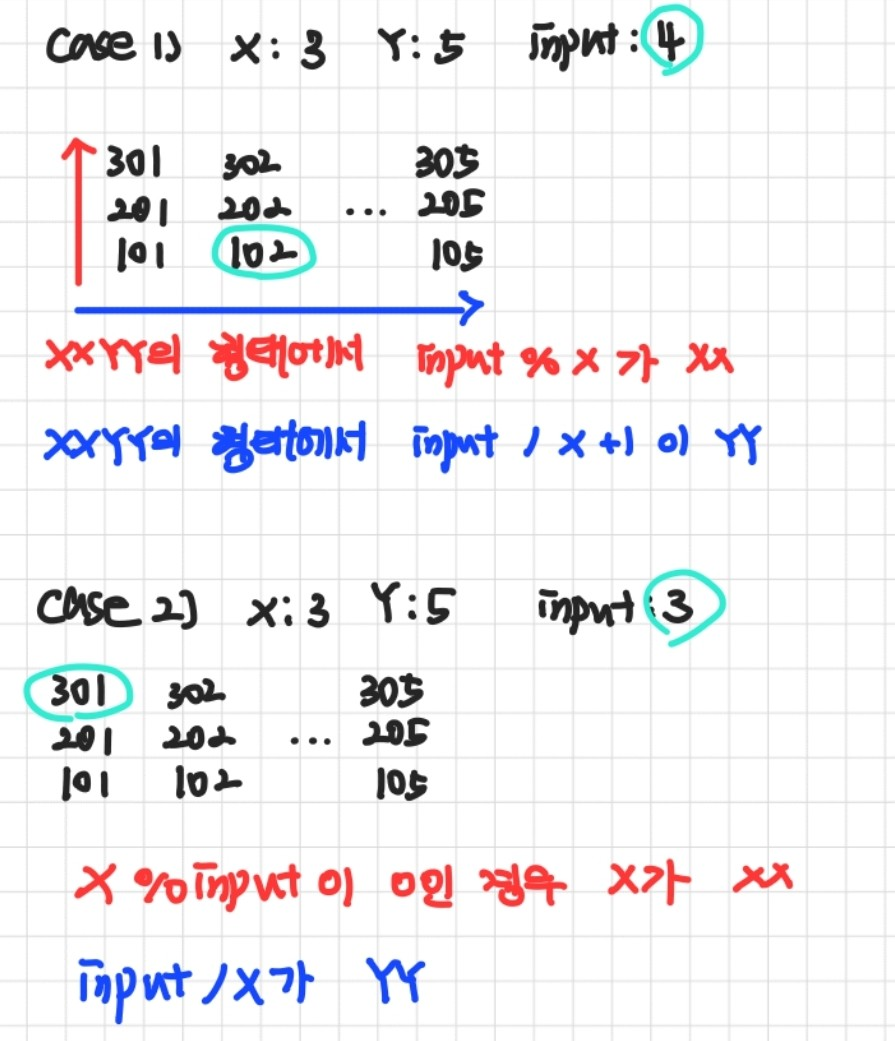 Case 1) X: 3 Y: 5 input: 4
301 302 305
201 202 ... 205
101 102 105
XXYY의 형태에서 input % X 가 XX
XXYY의 형태에서 input / X +1 이 YY
Case 2) X: 3 Y: 5 input: 3
301 302 305
201 202 ... 205
101 102 105
X % input 이 0인 경우 X가 XX
input / X가 YY